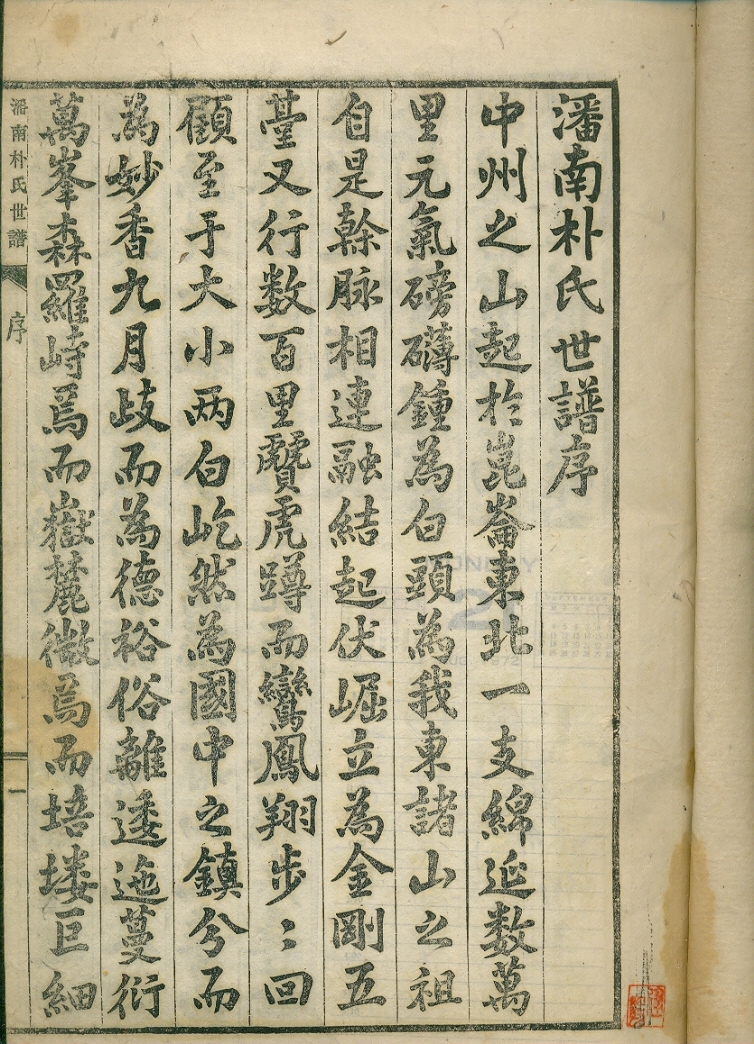 潘南朴氏世譜序
中州之山起於崑崙東北一支綿延数萬
里元氣磅礴鍾為白頭為我東諸山之祖
自是幹脉相連融結起伏崛立為金剛五
䑓又行数百里贙虎蹲而鸞鳳翔步〻回
顧至于大小两白屹然為國中之鎮兮而
為妙香九月歧而為德裕俗離逶迤蔓衍
萬峯森羅峙焉而嶽麓微焉而培塿巨細
潘南朴氏世譜
序
一